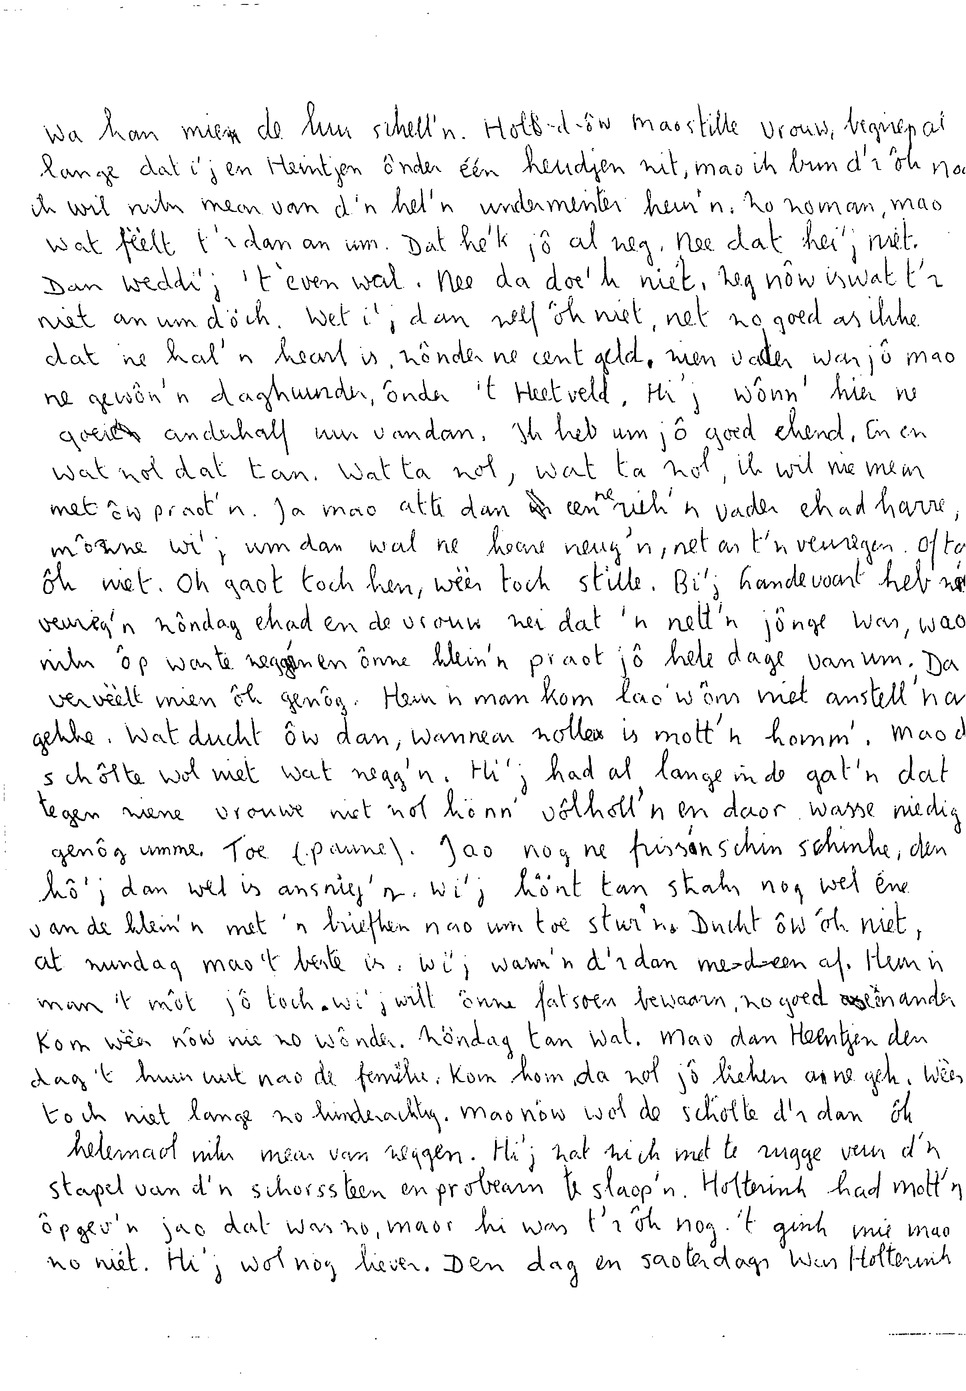 wa kan mien de huu schell'n. Holt-d-ôw mao stille vrouw, begriep al
lange dat i'j en Heintjen ônder één heudjen zit, mao ik bun d'r ôk noo
ik wil niks mear van d'n hel'n undermenter heur'n. No noman, mao
wat féélt t'r dan an um. Dat he'k jô al zeg. Nee dat hei'j niet.
Dan weddi'j 't even wal. Nee da doe'k niet. Zeg nôw is wat t'r
niet an um döch. Wet i'j dan zelf ôk niet, net zo goed as ikke
dat 'ne kal'n keerl is, zônder ne cent geld. Zien vader was jô mao
ne gewôn'n daghuurder, ônder 't Heetveld. Hi'j wônn' hier ne
goeien anderhalf uur vandan. Ik heb um jô goed ekend. En en
wat zol dat tan. Wat ta zol, wat ta zol, ik wil nie mear
met ôw praot'n. Ja mao atte dan ne riek'n vader ehad harre,
môsse wi'j um dan wal ne keare neug'n, net as t'n veuregen. Of ta
ôk niet. Oh gaot toch hen, wèès toch stille. Bi'j Handevoort heb ne
veureg'n zôndag ehad en de vrouw zei dat 'n nett'n jônge was, wao
niks ôp was te zeggen en ônne klein'n praot jô hele dage van um. Da
vervèèlt mien ôk genôg. Heur'n man kom lao'w ôns niet anstell'n as
gekke. Wat ducht ôw dan, wannear zolle is mott'n komm'. Mao d
schôlte wol niet wat zegg'n. Hi'j had al lange in de gat'n dat
tegen ziene vrouwe niet zol könn' vôlholl'n en daor wasse niedig
genôg umme. Toe (pauze). Jao nog ne frissin schin schinke, den
kô'j dan wel is ansnieg'n. Wi'j könt tan straks nog wel éne
van de klein'n met 'n briefken nao um toe stur'n. Ducht ôw ôk niet,
at zundag mao 't beste is. Wi'j wass'n d'r dan med-een af. Heur'n
man 't môt jô toch. Wi'j wilt ônne fatsoen bewaarn, zo goed as 'n ander
Kom wèès nôw nie zo wônder. Zôndag tan wat. Mao dan Heintjen den
dag 't huus uut nao de femilie. Kom kom da zol jô lieken as ne gek. Wèès
toch niet lange zo kinderachtig. Mao nôw wol de schôlte d'r dan ôk
helemaol niks mear van zeggen. Hi'j zat zich met te rugge veur d'n
stapel van d'n schorssteen en probearn te slaop'n. Holterink had mott'n
ôpgev'n jao dat was zo, maor hi was t'r ôk nog. 't gink mie mao
zo niét. Hi'j wol nog liever. Den dag en saoterdags was Holterink